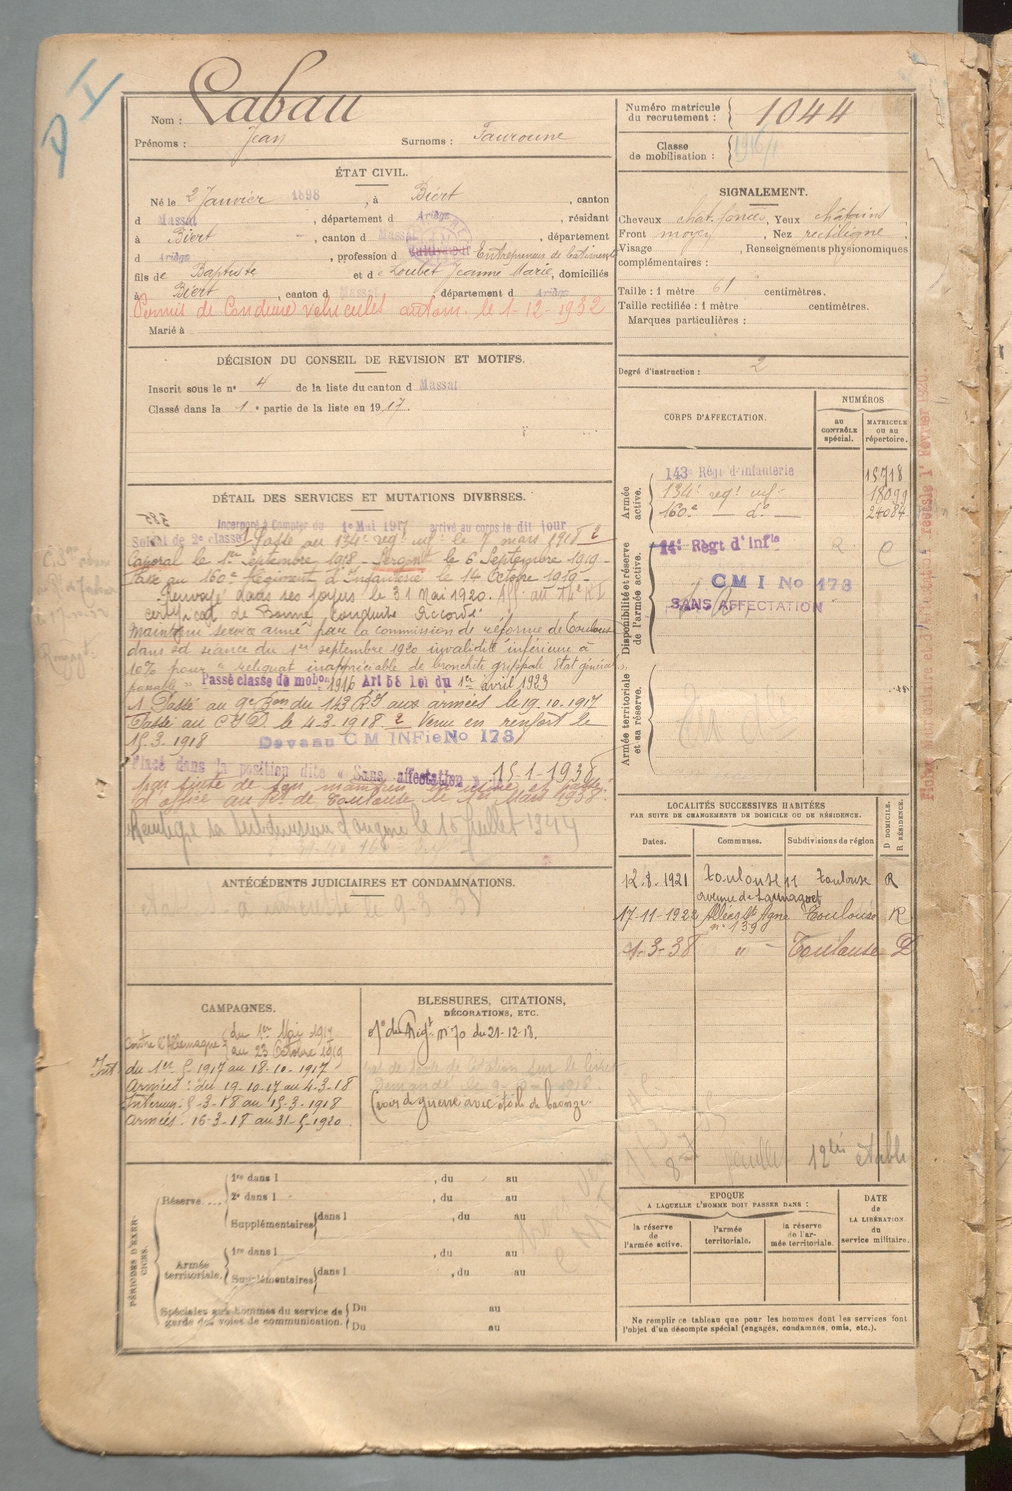 Nom : Labau
Prénoms : Jean Surnoms : Tauroune
Numéro matricule du recrutement : 1044
Classe de mobilisation : 1916/1
ÉTAT CIVIL.
Né le 2 Janvier 1898, à Biert, canton
d Massat, département d Ariège, résidant
à Biert, canton d Massat, département
d Ariège, profession d Cultivateur Entrepreneur de batiments
fils de Baptiste et de Loubet Jeanne Marie, domiciliés
à Biert, canton d Massat, département d Ariège
Permis de Conduire vehicules autom. le 1-12-1932
Marié à
SIGNALEMENT.
Cheveux chat. foncé, Yeux châtains
Front moyen, Nez rectiligne,
Visage , Renseignements physionomiques
complémentaires :
Taille : 1 mètre 61 centimètres.
Taille rectifiée : 1 mètre centimètres.
Marques particulières :
Degré d'instruction : 2
DÉCISION DU CONSEIL DE REVISION ET MOTIFS.
Inscrit sous le n° 4 de la liste du canton d Massat
Classé dans la 1e partie de la liste en 1917.
DÉTAIL DES SERVICES ET MUTATIONS DIVERSES.
Incorporé à Compter du 1er Mai 1917 arrivé au corps le dit jour
Soldat de 2e classe Passé au 134e regt inf. le 7 mars 1918 2
Caporal le 1er Septembre 1918 - Sergent le 6 Septembre 1919 -
Passé au 160e Régiment d'Infanterie le 14 Octobre 1919 -
Renvoyé dans ses foyers le 31 Mai 1920. Aff. au 14e R.I.
certificat de Bonne Conduite Accordé
Maintenu service armé par la commission de réforme de Toulouse
dans sa séance du 1er septembre 1920 invalidité inférieure à
10% pour " reliquat inappréciable de bronchite grippale Etat général
passable " Passé classe de mobon 1916 Art 58 loi du 1er avril 1923
1. Passé au 9e Bon du 143 R.I aux armées le 19.10.1917
Passé au C I D. le 4-3-1918 2 Venu en renfort le
15-3-1918 Devenu C M INFie No 173
Placé dans la position dite « Sans affectation » le 15-1-1935
par suite de
d'office au Rt de Toulouse le 1er Mars 1938.
la subdivision d'origine le 15 juillet 1944
CORPS D'AFFECTATION.
NUMÉROS
au CONTRÔLE spécial.
MATRICULE ou au répertoire.
Armée active.
143e Régt d'infanterie 15718
134e regt inf. 18099
160e - do - 24084
Disponibilité et réserve de l'armée active.
14e Régt d'Infie
C M I No 173
SANS AFFECTATION
Armée territoriale et sa réserve.
LOCALITÉS SUCCESSIVES HABITÉES
PAR SUITE DE CHANGEMENTS DE DOMICILE OU DE RÉSIDENCE.
Dates. Communes. Subdivisions de région D DOMICILE. R RÉSIDENCE.
12.8.1921 Toulouse 11 avenue de Lamaguet Toulouse R
17-11-1922 Allées St Agne n° 139 Toulouse R
1-3-38 " - Toulouse D
ANTÉCÉDENTS JUDICIAIRES ET CONDAMNATIONS.
CAMPAGNES.
Contre l'Allemagne du 1er Mai 1917
au 23 Octobre 1919
Int. du 1er 5 1917 au 18-10-1917
Armées : du 19-10-17 au 4-3-18
Interieur : 5-3-18 au 15-3-1918
Armées : 16-3-18 au 31-5-1920.
BLESSURES, CITATIONS,
DÉCORATIONS, ETC.
o/o du Régt n° 70 du 21-12-18.
Croix de guerre avec étoile de bronze.
PÉRIODES D'EXERCICES.
Réserve....
1re dans l , du au
2e dans l , du au
Supplémentaires dans l , du au
Armée territoriale.
1re dans l , du au
Supplémentaires dans l , du au
Spéciales aux hommes du service de
garde des voies de communication.
Du au
Du au
EPOQUE
A LAQUELLE L'HOMME DOIT PASSER DANS :
la réserve de l'armée active.
l'armée territoriale.
la réserve de l'armée territoriale.
DATE
de
LA LIBÉRATION
du
service militaire.
Ne remplir ce tableau que pour les hommes dont les services font
l'objet d'un décompte spécial (engagés, condamnés, omis, etc.).